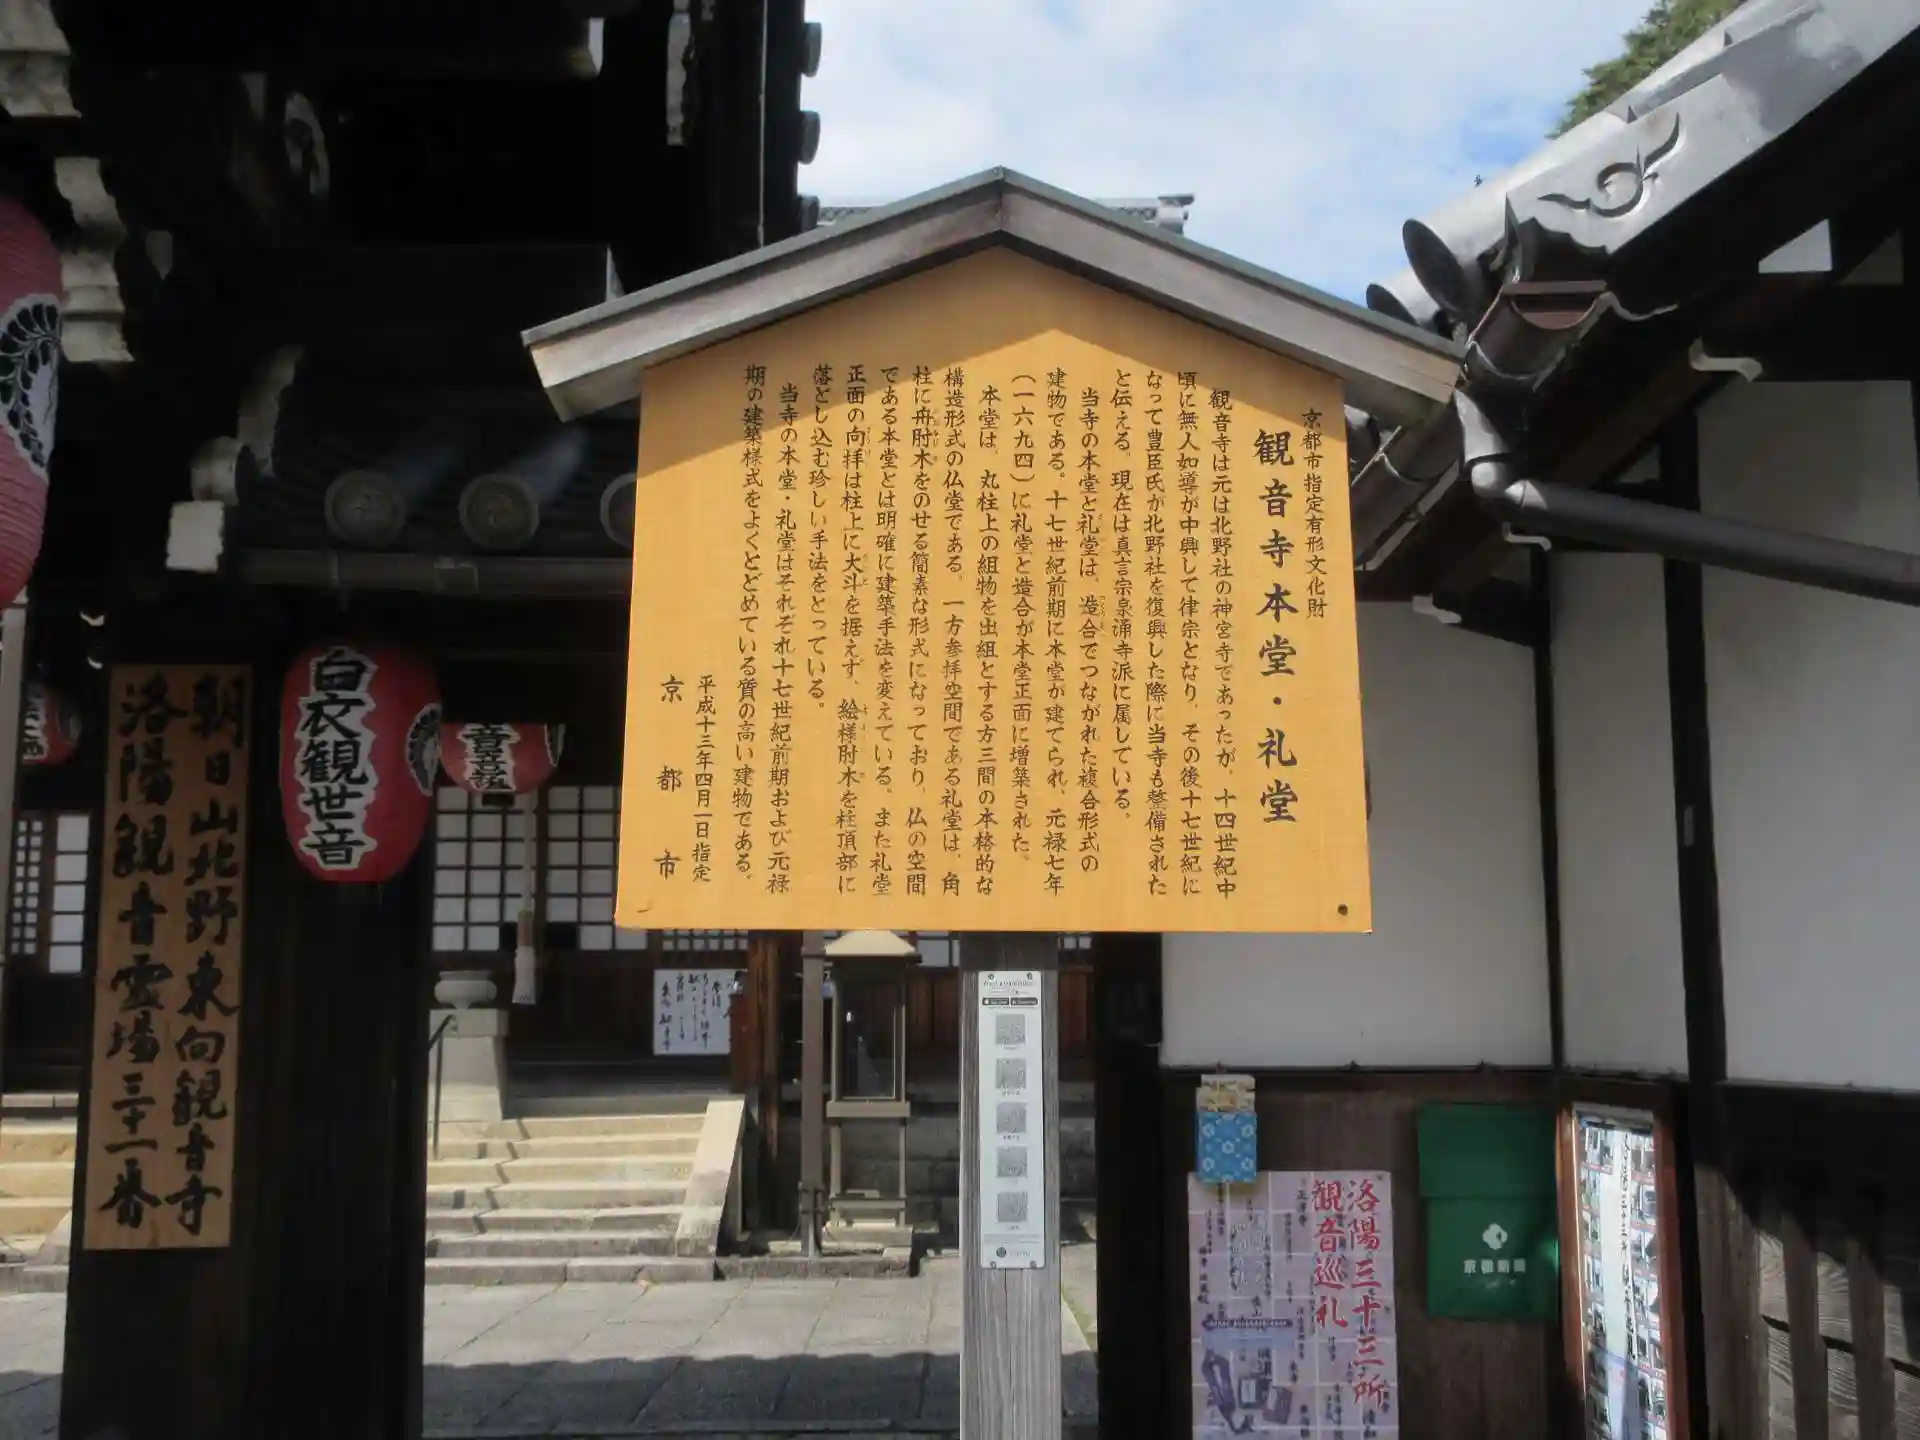 京都市指定有形文化財
観音寺本堂・礼堂
観音寺は元は北野社の神宮寺であったが、十四世紀中
頃に無人如導が中興して律宗となり、その後十七世紀に
なって豊臣氏が北野社を復興した際に当寺も整備された
と伝える。現在は真言宗泉涌寺派に属している。
当寺の本堂と礼堂は、造合でつながれた複合形式の
建物である。十七世紀前期に本堂が建てられ、元禄七年
(一六九四)に礼堂と造合が本堂正面に増築された。
本堂は、丸柱上の組物を出組とする方三間の本格的な
構造形式の仏堂である。一方参拝空間である礼堂は、角
柱に舟肘木をのせる簡素な形式になっており、仏の空間
である本堂とは明確に建築手法を変えている。また礼堂
正面の向拝は柱上に大斗を据えず、絵様肘木を柱頂部に
落とし込む珍しい手法をとっている。
当寺の本堂・礼堂はそれぞれ十七世紀前期および元禄
期の建築様式をよくとどめている質の高い建物である。
平成十三年四月一日指定
京都市
朝日山北野東向観音寺
洛陽観音霊場三十一番
白衣観世音
洛陽三十三所
観音巡礼
京都新聞